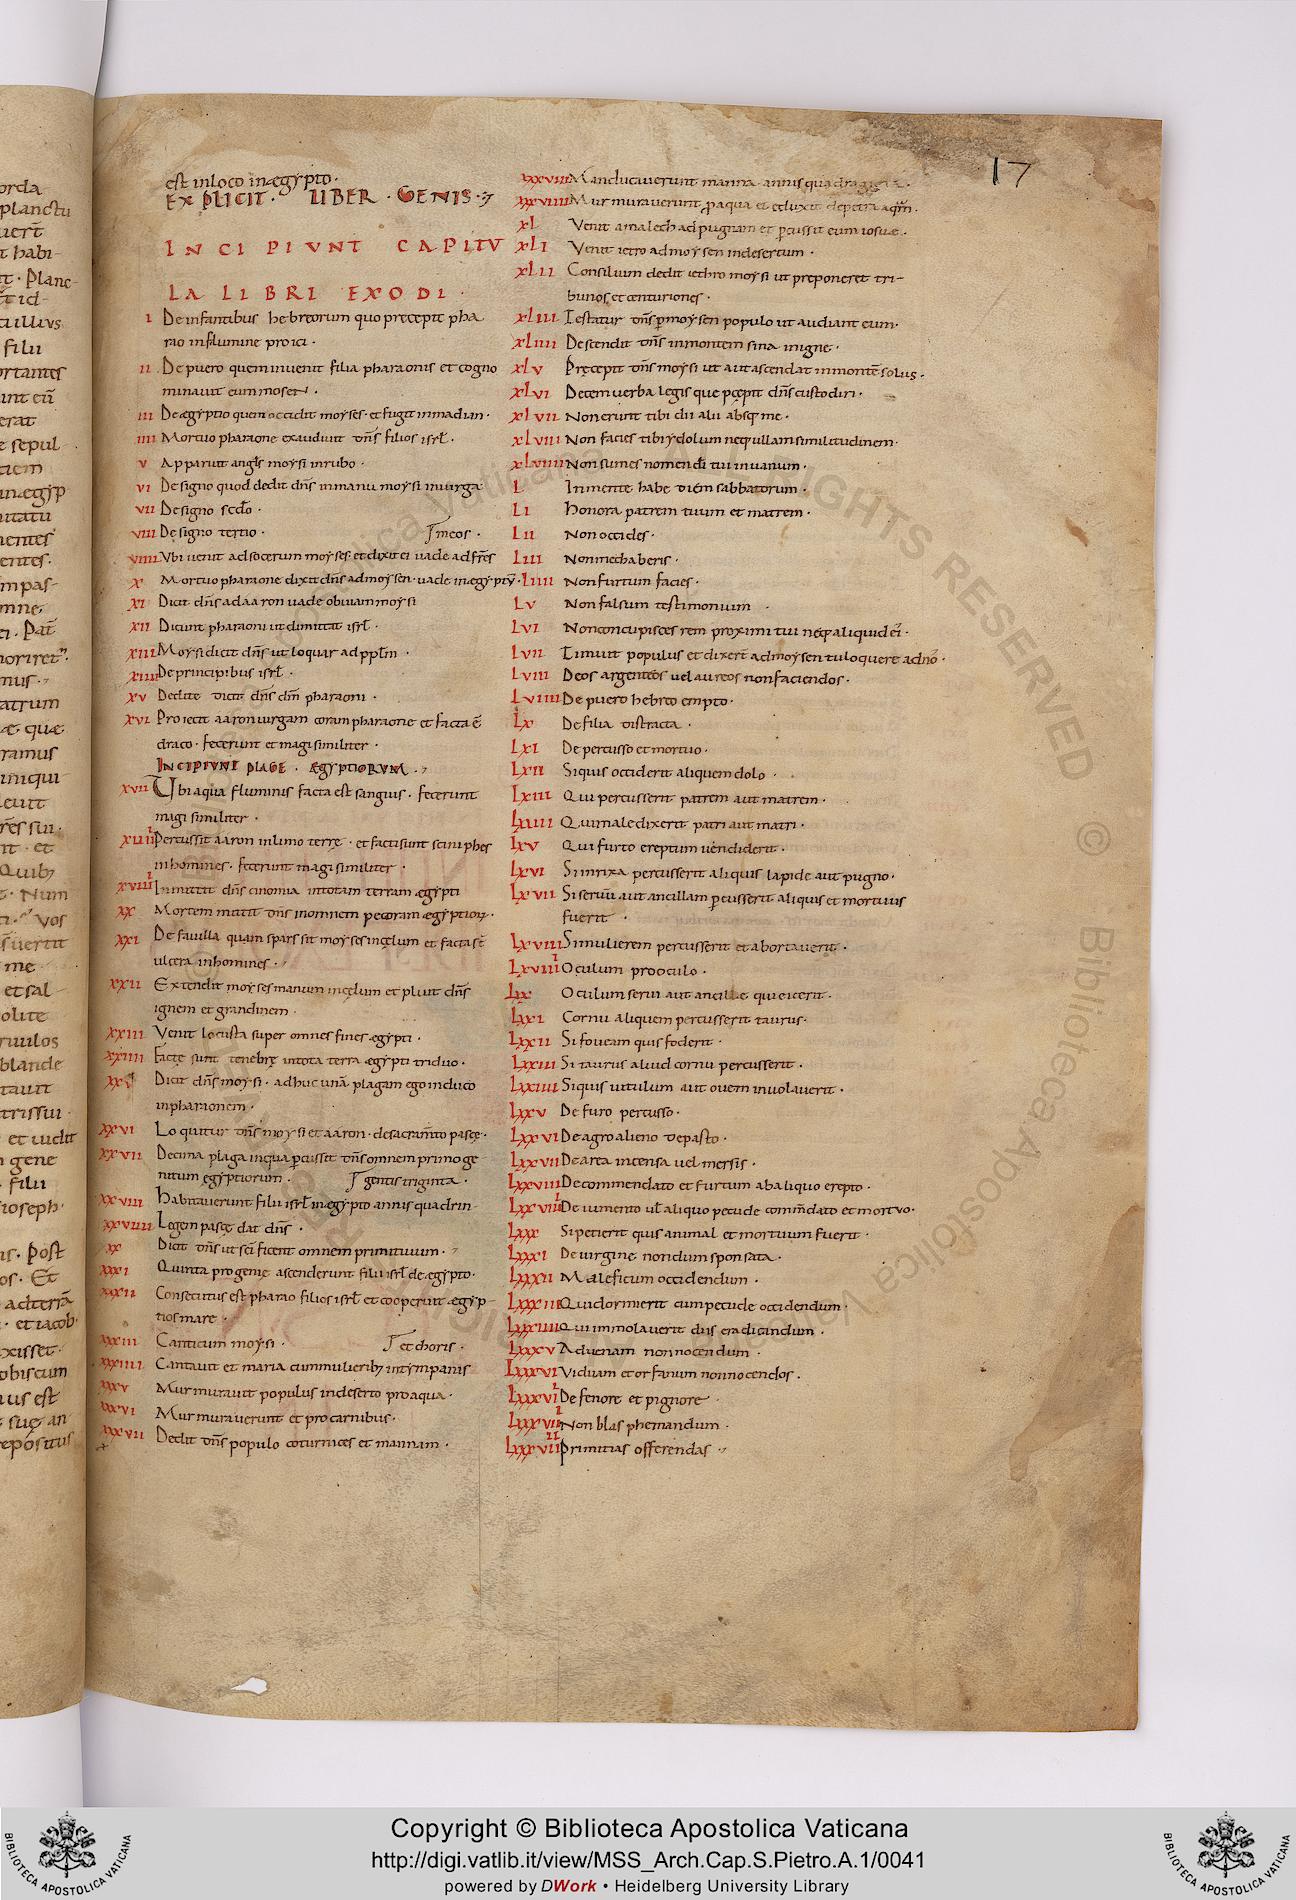 est in loco in ægypto.
EXPLICIT. LIBER. GENIS.
INCIPIUNT CAPITU
LA LIBRI EXODI.
I De infantibus hebreorum quo precepit pha
rao in flumine proici.
II De puero quem invenit filia pharaonis et cogno
minavit eum mosen.
III De ægyptio quem occidit moyses. et fugit in madian.
IIII Mortuo pharaone exaudivit dns̄ filios isrl̄.
V Apparuit angls̄ moysi in rubo.
VI De signo quod dedit dns̄ in manu moysi in virga
VII De signo scd̄o.
VIII De signo tertio. meos.
VIIII Ubi venit ad socerum moyses et dixit ei vade ad frēs
X Mortuo pharaone dixit dns̄ ad moysen. vade in ægyptū.
XI Dicit dns̄ ad aaron vade obviam moysi
XII Dicunt pharaoni ut dimittat isrl̄.
XIII Moysi dicit dns̄ ut loquar ad pplm̄
XIIII De principibus isrl̄.
XV Dedi te dicit dns̄ dm̄ pharaoni.
XVI Proiecit aaron virgam coram pharaone et facta ē
draco. fecerunt et magi similiter.
INCIPIUNT PLAGE. ÆGYPTIORUM.
XVII Ubi aqua fluminis facta est sanguis. fecerunt
magi similiter.
XVIII Percussit aaron in limo terrę. et facti sunt sciniphes
in homines. fecerunt magi similiter.
XVIIII Inmittit dns̄ cinomia in totam terram ægypti
XX Mortem mittit dns̄ in omnem pecoram ægyptiorꝝ.
XXI De favilla quam sparssit moyses in cęlum et facta sē
ulcera in homines.
XXII Extendit moyses manum in cęlum et pluit dns̄
ignem et grandinem.
XXIII Venit locusta super omnes fines ægypti.
XXIIII Factę sunt tenebrę in tota terra ægypti triduo.
XXV Dicit dns̄ moysi. adhuc unā plagam ego induco
in pharionem.
XXVI Loquitur dns̄ moysi et aaron. de sacram̄to pascę.
XXVII Decima plaga in qua ꝑcussit dns̄ omnem primoge
nitum egyptiorum. gentis triginta.
XXVIII Habitaverunt filii isrl̄ in ægypto annis quadrin
XXVIIII Legem pascę dat dns̄.
XX Dicit dns̄ ut scīficent omnem primitivum.
XXXI Quinta progenie ascenderunt filii isrl̄ de ægypto.
XXXII Consecutus est pharao filios isrl̄ et cooperuit ægyp
tios mare.
XXXIII Canticum moysi. et choris.
XXXIIII Cantavit et maria cum mulierib; in tympanis
XXXV Murmuravit populus in deserto pro aqua.
XXXVI Murmuraverunt et pro carnibus.
XXXVII Dedit dns̄ populo coturnices et mannam.
XXXVIII Manducaverunt manna annis quadraginta.
XXXVIIII Murmuraverunt p aqua et eduxit de petra aquā.
XL Venit amalech ad pugnam et ꝑcussit eum iosue.
XLI Venit ietro ad moysen in desertum.
XLII Consilium dedit iethro moysi ut preponeret tri-
bunos et centuriones.
XLIII Testatur dns̄ ꝑ moysen populo ut audiant eum.
XLIIII Descendit dns̄ in montem sina in igne.
XLV Pręcepit dns̄ moysi ut aut ascendat in montē solus.
XLVI Decem verba legis que pcepit dns̄ custodiri.
XLVII Non erunt tibi dii alii absq; me.
XLVIII Non facies tibi ydolum neq; ullam similitudinem.
XLVIIII Non sumes nomen dī tui in vanum.
L In mente habe diem sabbatorum.
LI Honora patrem tuum et matrem.
LII Non occides.
LIII Non mechaberis.
LIIII Non furtum facies.
LV Non falsum testimonium.
LVI Non concupisces rem proximi tui neq; aliquid ei.
LVII Timuit populus et dixerт̄ ad moysen tu loquere ad nō.
LVIII Deos argenteos vel aureos non faciendos.
LVIIII De puero hebreo empto.
LX De filia distracta.
LXI De percusso et mortuo.
LXII Siquis occiderit aliquem dolo.
LXIII Qui percusserit patrem aut matrem.
LXIIII Qui maledixerit patri aut matri.
LXV Qui furto ereptum vendiderit.
LXVI Si in rixa percusserit aliquis lapide aut pugno.
LXVII Si servū aut ancillam ꝑcusserit aliquis et mortuus
fuerit.
LXVIII Si mulierem percusserit et abortaverit.
LXVIIII Oculum pro oculo.
LXX Oculum servi aut ancille qui eicerit.
LXXI Cornu aliquem percusserit taurus.
LXXII Si foveam quis foderit.
LXXIII Si taurus aliud cornu percusserit.
LXXIIII Siquis vitulum aut ovem involaverit.
LXXV De furo percusso.
LXXVI De agro alieno depasto.
LXXVII De area incensa vel messis.
LXXVIII De commendato et furtum ab aliquo erepto.
LXXVIIII De iumento vl̄ aliquo pecude comm̄dato et mortuo.
LXXX Si petierit quis animal et mortuum fuerit.
LXXXI De virgine nondum sponsata.
LXXXII Maleficum occidendum.
LXXXIII Qui dormierit cum pecude occidendum.
LXXXIIII Qui immolaverit diis eradicandum.
LXXXV Advenam non nocendum.
LXXXVI Viduam et orfanum non nocendos.
LXXXVII De fenore et pignore
LXXXVIII Non blasphemandum.
LXXXVIIII Primitias offerendas
17
Copyright © Biblioteca Apostolica Vaticana
http://digi.vatlib.it/view/MSS_Arch.Cap.S.Pietro.A.1/0041
powered by DWork • Heidelberg University Library